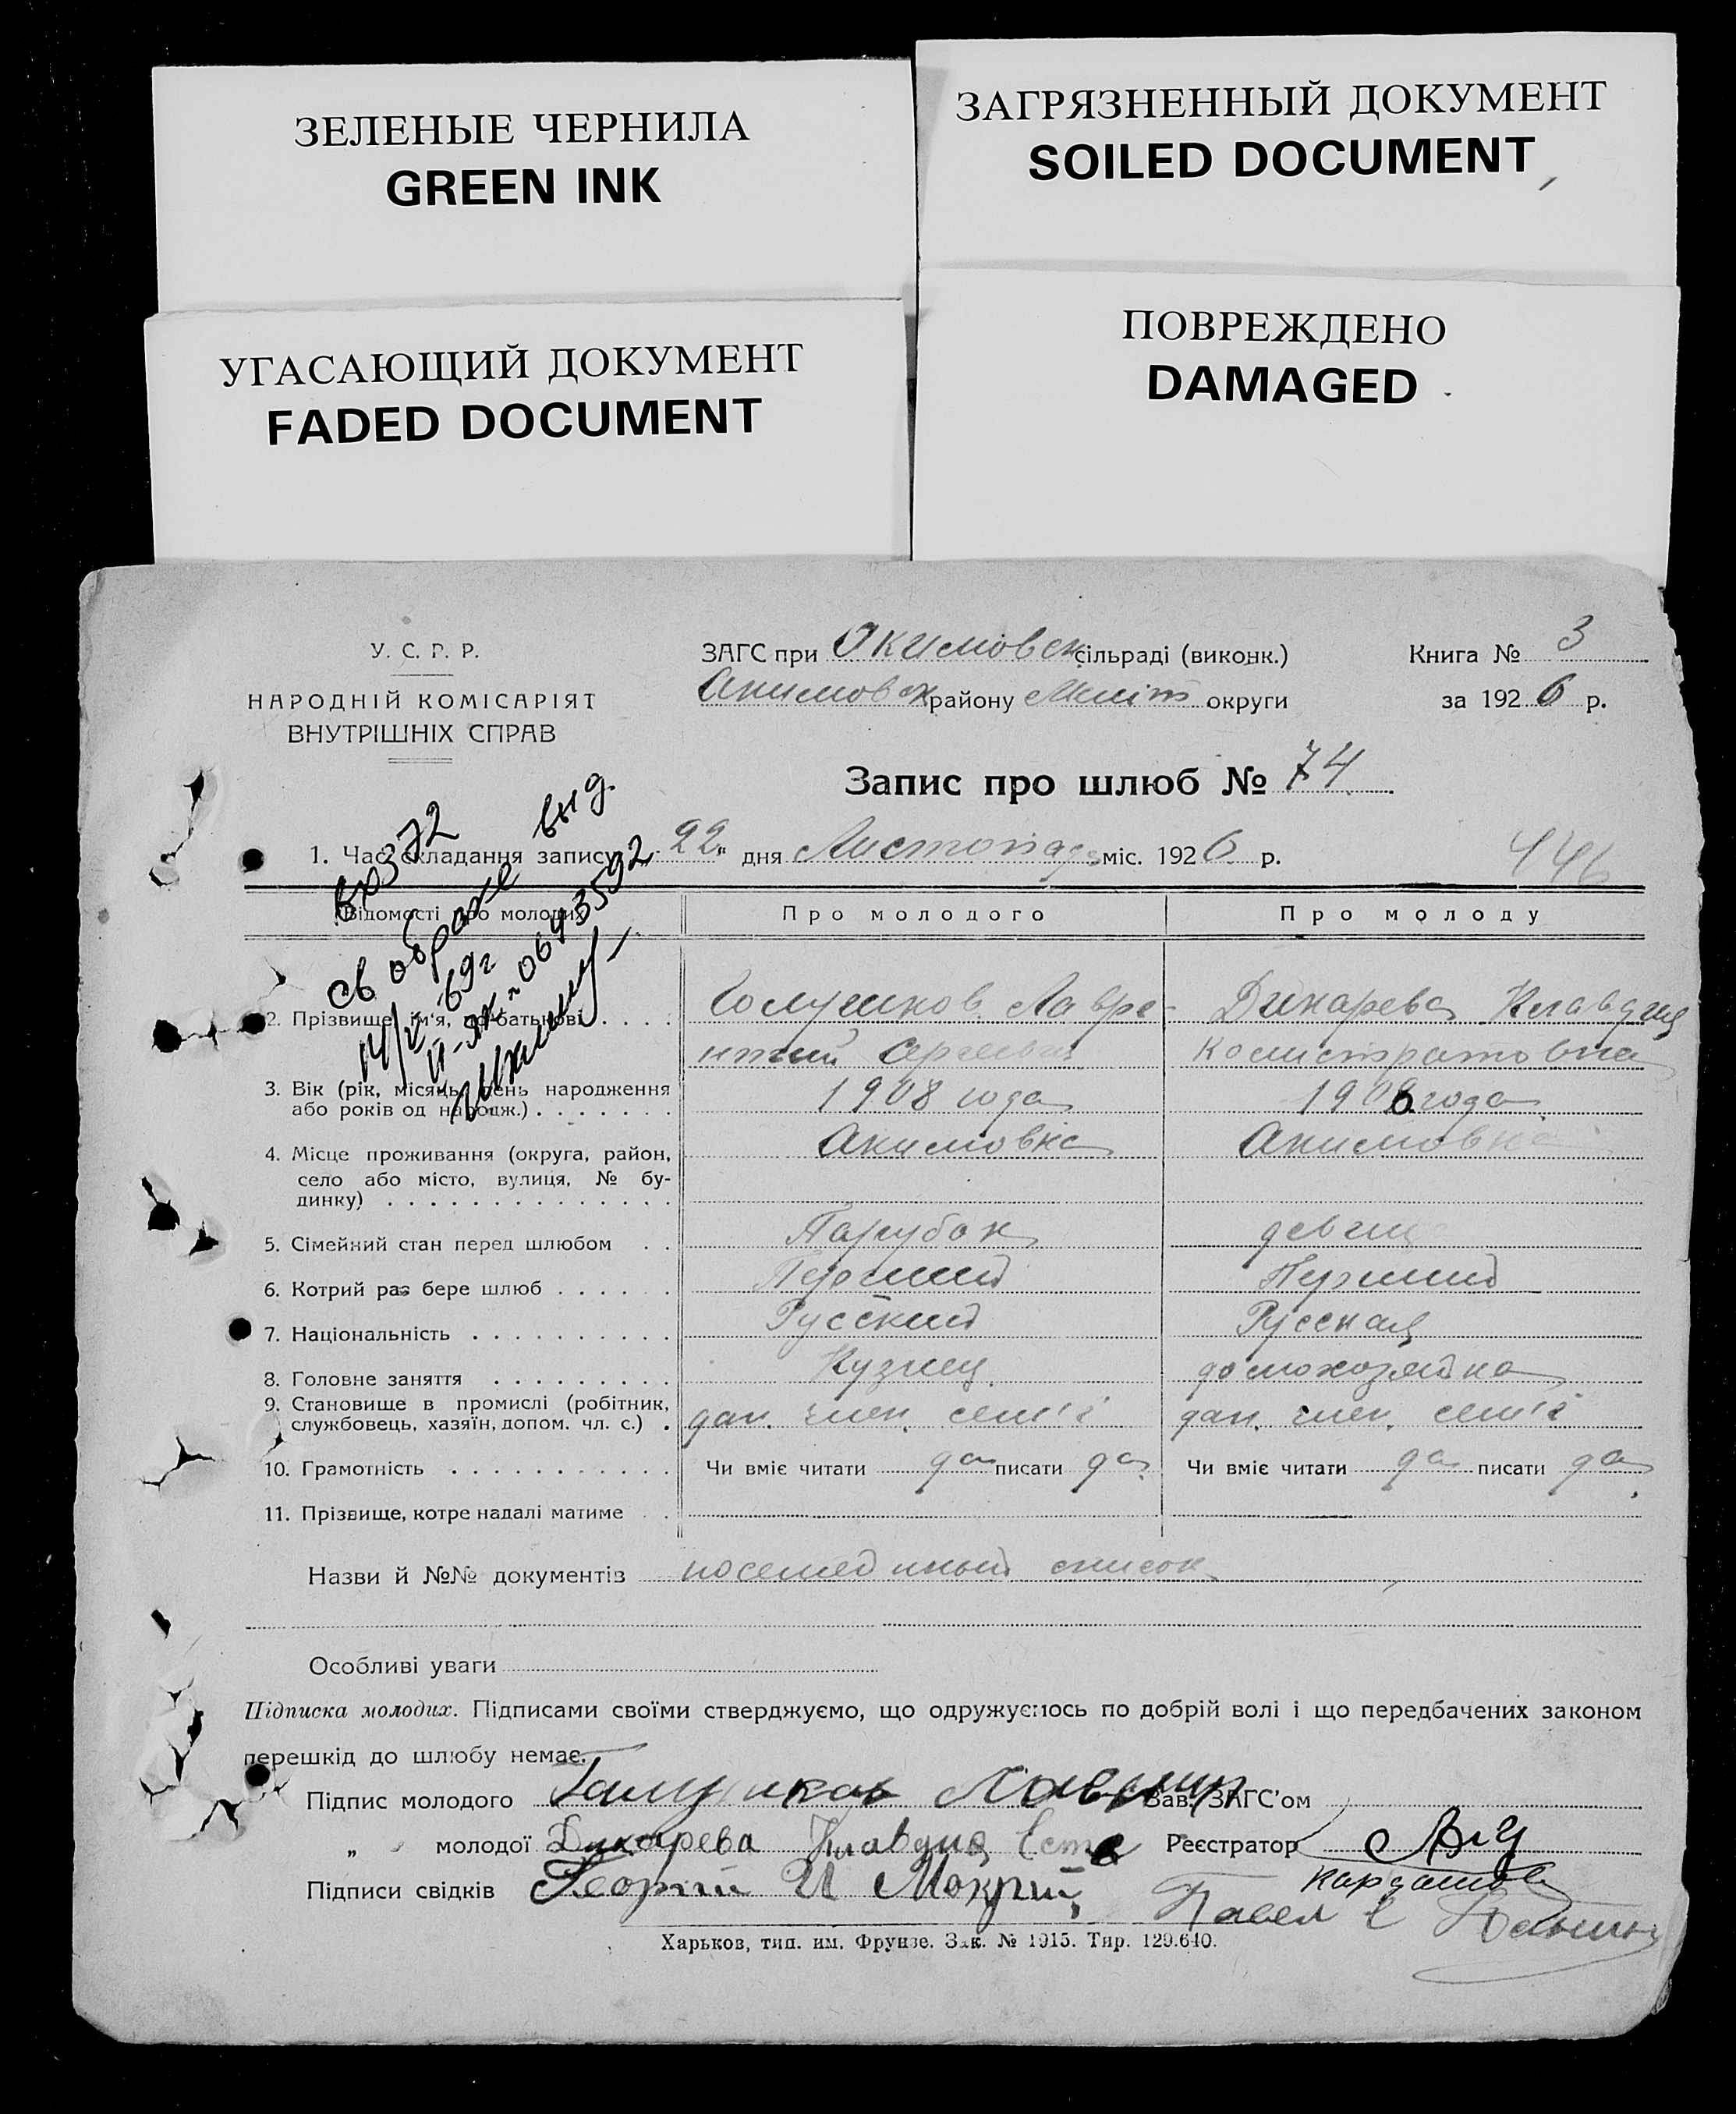 ЗЕЛЕНЫЕ ЧЕРНИЛА
GREEN INK
ЗАГРЯЗНЕННЫЙ ДОКУМЕНТ
SOILED DOCUMENT
УГАСАЮЩИЙ ДОКУМЕНТ
FADED DOCUMENT
ПОВРЕЖДЕНО
DAMAGED
У. С. Р. Р.
НАРОДНІЙ КОМІСАРІЯТ
ВНУТРІШНІХ СПРАВ
ЗАГС при Окимовск сільраді (виконк.)
Акимовск району Меліт округи
Книга № 3
за 1926 р.
Запис про шлюб № 74
1. Час складання запису „22" дня Листопада міс. 1926 р.
446
св о браке выд.
14/V-69г
II-ЯК № 0643592
Відомості про молодих
Про молодого
Про молоду
2. Прізвище, ім'я, по-батькові
Лавре-
нтий
Дикарева Клавдия
3. Вік (рік, місяць, день народження
або років од народж.)
1908 года
1906 года
4. Місце проживання (округа, район,
село або місто, вулиця, № бу-
динку)
Акимовка
Акимовка
5. Сімейний стан перед шлюбом
Парубок
девица
6. Котрий раз бере шлюб
Перший
Перший
7. Національність
Русский
Русская
8. Головне заняття
Кузнец
домохозяйка
9. Становище в промислі (робітник,
службовець, хазяїн, допом. чл. с.)
доп. член. сем'ї
доп. член. сем'ї
10. Грамотність
Чи вміє читати да писати да
Чи вміє читати да писати да
11. Прізвище, котре надалі матиме
Назви й №№ документів посемейный список
Особливі уваги
Підписка молодих. Підписами своїми стверджуємо, що одружуємось по добрій волі і що передбачених законом
перешкід до шлюбу немає.
Підпис молодого
Зав. ЗАГС'ом
„ молодої Дикарева Клавдия
Реєстратор
Підписи свідків Георгій И Мокрий
Павел
Харьков, тип. им. Фрунзе. Зак. № 1915. Тир. 129.640.